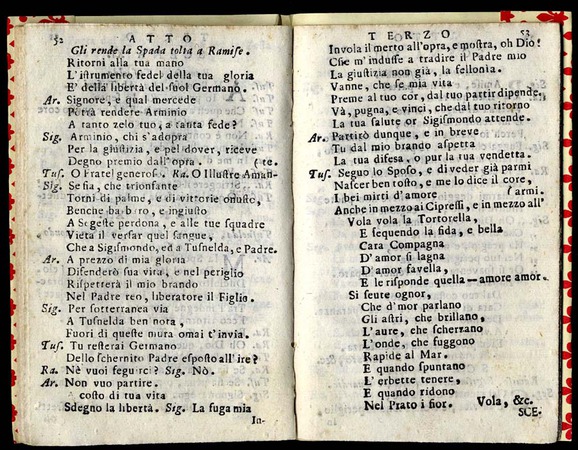 52 ATTO
Gli rende la Spada tolta a Ramise.
Ritorni alla tua mano
L'istrumento fedel della tua gloria
E' della libertà del suol Germano.
Ar. Signore, e qual mercede
Potrà rendere Arminio
A tanto zelo tuo, a tanta fede?
Sig. Arminio, chi s'adopra
Per la giustizia, e pel dover, riceve
Degno premio dall'opra. (te.
Tus. O Fratel generoso. Ra. O Illustre Aman-
Sig. Se fia, che trionfante
Torni di palme, e di vittorie onusto,
Benche barbaro, e ingiusto
A Segeste perdona, e alle tue squadre
Vieta il versar quel sangue,
Che a Sigismondo, ed a Tusnelda, e Padre.
Ar. A prezzo di mia gloria
Difenderò sua vita, e nel periglio
Rispetterà il mio brando
Nel Padre reo, liberatore il Figlio.
Sig. Per sotterranea via
A Tusnelda ben nota,
Fuori di queste mura omai t'invia.
Tus. Tu resterai Germano
Dello schernito Padre esposto all'ire?
Ra. Nè vuoi seguirci? Sig. Nò.
Ar. Non vuo partire.
A costo di tua vita
Sdegno la libertà. Sig. La fuga mia
In-
TERZO 53
Invola il merto all'opra, e mostra, oh Dio!
Che m'indusse a tradire il Padre mio
La giustizia non già, la fellonia.
Vanne, che se mia vita
Preme al tuo cor, dal tuo partir dipende;
Và, pugna, e vinci, che dal tuo ritorno
La tua salute or Sigismondo attende.
Ar. Partirò dunque, e in breve
Tu dal mio brando aspetta
La tua difesa, o pur la tua vendetta.
Tus. Seguo lo Sposo, e di veder già parmi
Nascer ben tosto, e me lo dice il core,
I bei mirti d'amore (armi.
Anche in mezzo ai Cipressi, e in mezzo all'
Vola vola la Tortorella,
E seguendo la fida, e bella
Cara Compagna
D'amor si lagna
D'amor favella,
E le risponde quella — amore amor.
Si sente ognor,
Che d'mor parlano
Gli astri, che brillano,
L'aure, che scherzano
L'onde, che fuggono
Rapide al Mar.
E quando spuntano
L'erbette tenere,
E quando ridono
Nel Prato i fior. Vola, &c.
SCE-